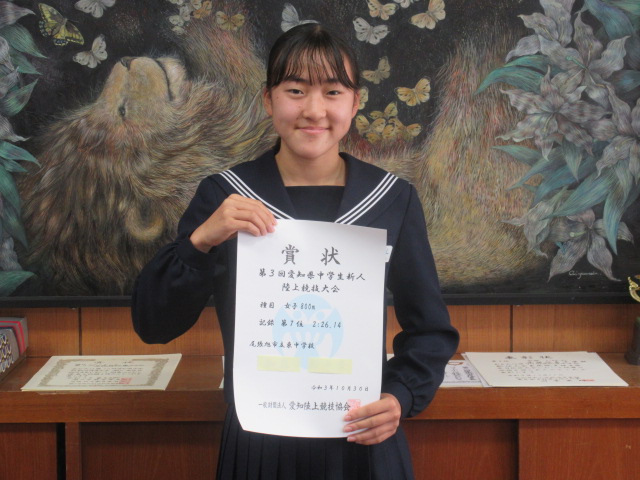 賞状
第3回愛知県中学生新人
陸上競技大会
種目 女子800m
記録 第1位 2:26.14
尾張旭市立東中学校
令和3年10月30日
一般財団法人 愛知陸上競技協会